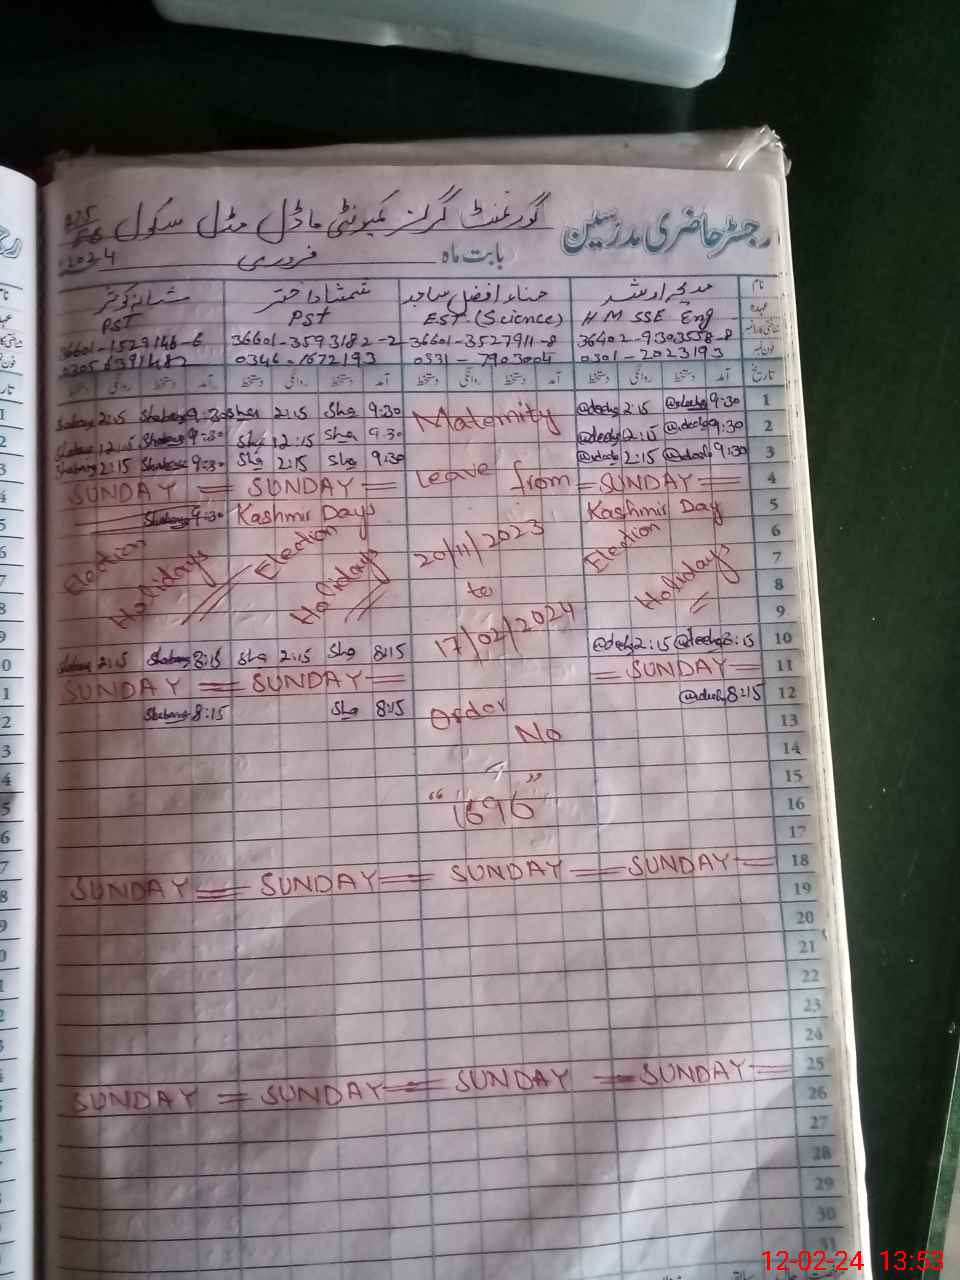 رجسٹر حاضری مدرسین گورنمنٹ گرلز کمیونٹی ماڈل مڈل سکول
بابت ماہ فروری 2024
نام مدیحہ ارشد حناء افضل ساجد شمشاد اختر شبانہ کوثر
عہدہ HM SSE Eng EST. (Science) PST PST
36402-9303558-8 36601-3527911-8 36601-3593182-2 36601-1529146-6
فون نمبر 0301-2023193 0331-7903004 0346-1672193
تاریخ آمد دستخط روانگی دستخط آمد دستخط روانگی دستخط آمد دستخط روانگی دستخط آمد دستخط روانگی دستخط
1 9:30 2:15 Maternity 9:30 Sha 2:15 Sha 9:30 Shabana 2:15
2 9:30 2:15 9:30 Sha 12:15 Sha 9:30 12:15
3 9:30 2:15 Leave from 9:30 Sha 2:15 Sha 9:30 2:15
4 =SUNDAY= SUNDAY= SUNDAY=
5 Kashmir Day Kashmir Days 9:30
6 Election 20/11/2023 Election Election
7 Holidays Holidays Holidays
8 to
9 17/02/2024
10 8:15 2:15 8:15 Sha 2:15 Sha 8:15 2:15
11 =SUNDAY= SUNDAY= SUNDAY=
12 8:15 Order 8:15 Sha 8:15
13 No
14
15
16 "1696"
17
18 SUNDAY= SUNDAY= SUNDAY= SUNDAY=
19
20
21
22
23
24
25 SUNDAY= SUNDAY= SUNDAY= SUNDAY=
26
27
28
29
30
31
12-02-24 13:53